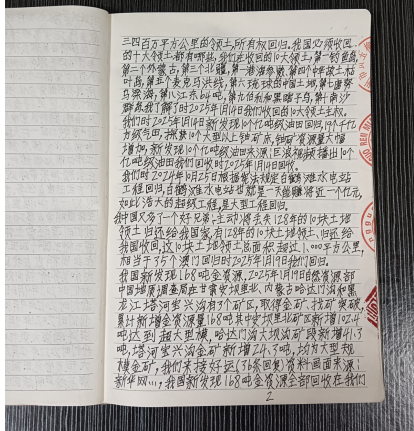 三四百万平方公里的领土,所有权回归。我国必须收回
的十大领土都有哪些,我们还收回的10大领土,第一钓鱼岛
第二外蒙古,第三个北疆,第一港海参崴,第四个
叶岛,第五个麦克马洪线,第六琉球的中国土地,第七唐努
乌梁海,第八江东64屯,第九伯利和黑瞎子岛,第十南沙
群岛我了解了时2025年1月14日我们收回的10大领土主权。
我们时2025年1月14日新发现10个亿吨级油田回归,19个千亿
方级气田,探获10个大型以上铀矿床,铀矿资源量大幅
增加,新发现10个亿吨级油田来源:巨浪视频播出10个
亿吨级油田我们回收时2025年1月14日回收。
我们时2024年10月25日根据宪法规定白鹤滩水电站
工程回归,白鹤滩水电站也就是一天能赚将近一个亿元,
如此浩大的超级工程,是大型工程回归。
我中国又多了一个好兄弟,主动将丢失128年的10块土地
领土归还给我国家,有128年的10块土地领土、归还给
我国收回,这10块土地领土总面积超过1,000平方公里,
相当于35个澳门回归时2025年1月19日我们回归。
我国新发现168吨金资源,2025年1月19日自然资源部
中国地质调查局在甘肃安坝里北、内蒙古哈达门沟和黑
龙江塔河宝兴沟有3个矿区,取得金矿,找矿突破,
累计新增金资源量168吨其中安坝里北矿区新增102.4
吨达到超大型规,哈达门沟大坝沟矿段新增41.3
吨,塔河宝兴沟金矿新增24.3吨,均为大型规
模金矿,我们来接好运(36条回复)资料画面来源:
新华网…,我国新发现168吨金资源全部回收在我们
2